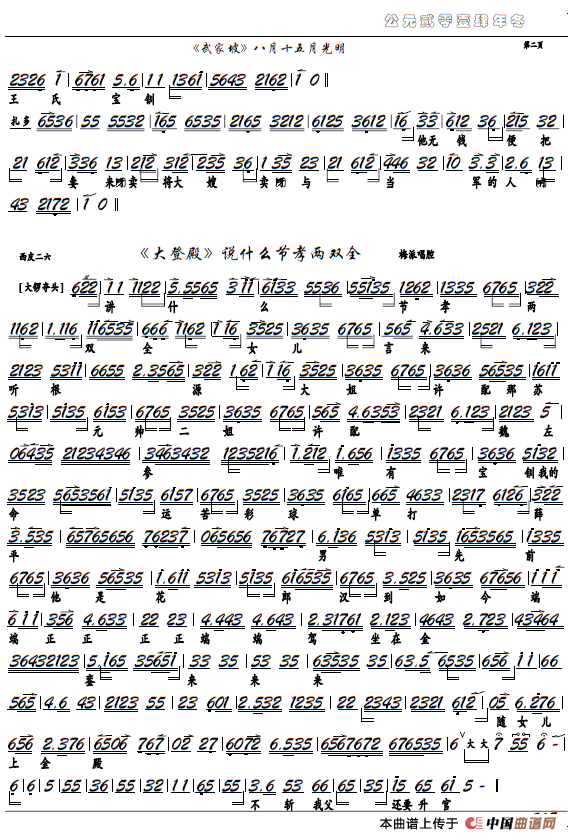 公元贰零壹肆年冬
《武家坡》八月十五月光明 第二页
2326 1 6761 5.6 11 1361 5643 2162 1 0
王 氏 宝 钏
扎多 6536 55 5532 165 6535 2165 3212 6125 3612 16 33 612 36 215 32
他无 钱 便 把
21 612 336 13 212 312 235 36 1 35 23 21 612 446 32 10 3.3 2.6 13
妻 来 卖 将大 嫂 卖 与 当 军的 人
43 2172 1 0
《大登殿》说什么节孝两双全
西皮二六 梅派唱腔
[大锣夺头] 622 11 1122 5.5565 3 11 6133 5536 55135 1262 1335 6765 322
讲 什 么 节 孝 两
1162 1.116 116535 666 1162 116 3525 3635 6765 365 4.633 2521 6.123
双 全 女 儿 言 来
2123 5311 6655 2.3565 322 162 116 3525 3635 6765 3636 565535 1611
听 根 源 大 姐 许 配 那 苏
5313 5135 6153 6765 3525 3635 6765 565 4.6353 2321 6.123 2123 5
元 帅 二 姐 许 配 魏 左
06435 21234346 3463432 1235216 1.212 1.656 1335 6765 3636 5132
参 唯 有 宝 钏我的
3523 5653561 5135 6157 6765 3525 3635 6165 665 4633 2317 6126 322
命 运 苦 彩 球 单 打 薛
3.535 65765656 76237 065656 76727 6.136 5313 5135 1653565 1335
平 男 先 前
6765 3636 56535 1.611 5313 5135 616535 6765 3.525 3635 67656 111
他 是 花 郎 汉 到 如 今 端
611 356 4.633 22 23 4.443 4.643 2.31761 2.123 4643 2.723 43464
端 正 正 正 正 端 端 驾 坐 在 金
36432123 5.165 35651 53 53 635535 35 63.5 6535 656 11 66
銮 来 来 来 来
565 4.6 43 2123 55 23 601 2.532 1235 22 2343 2321 612 05 6.276
随 女 儿
656 2.376 6506 767 02 27 6072 6.535 6567672 676535 6 大大 7 55 6 -
上 金 殿
6 6 5 55 36 55 32 11 65 55 3.6 53 66 65.35 15 65 61 5 -
不 斩 我父 还要 升 官
本曲谱上传于 中国曲谱网